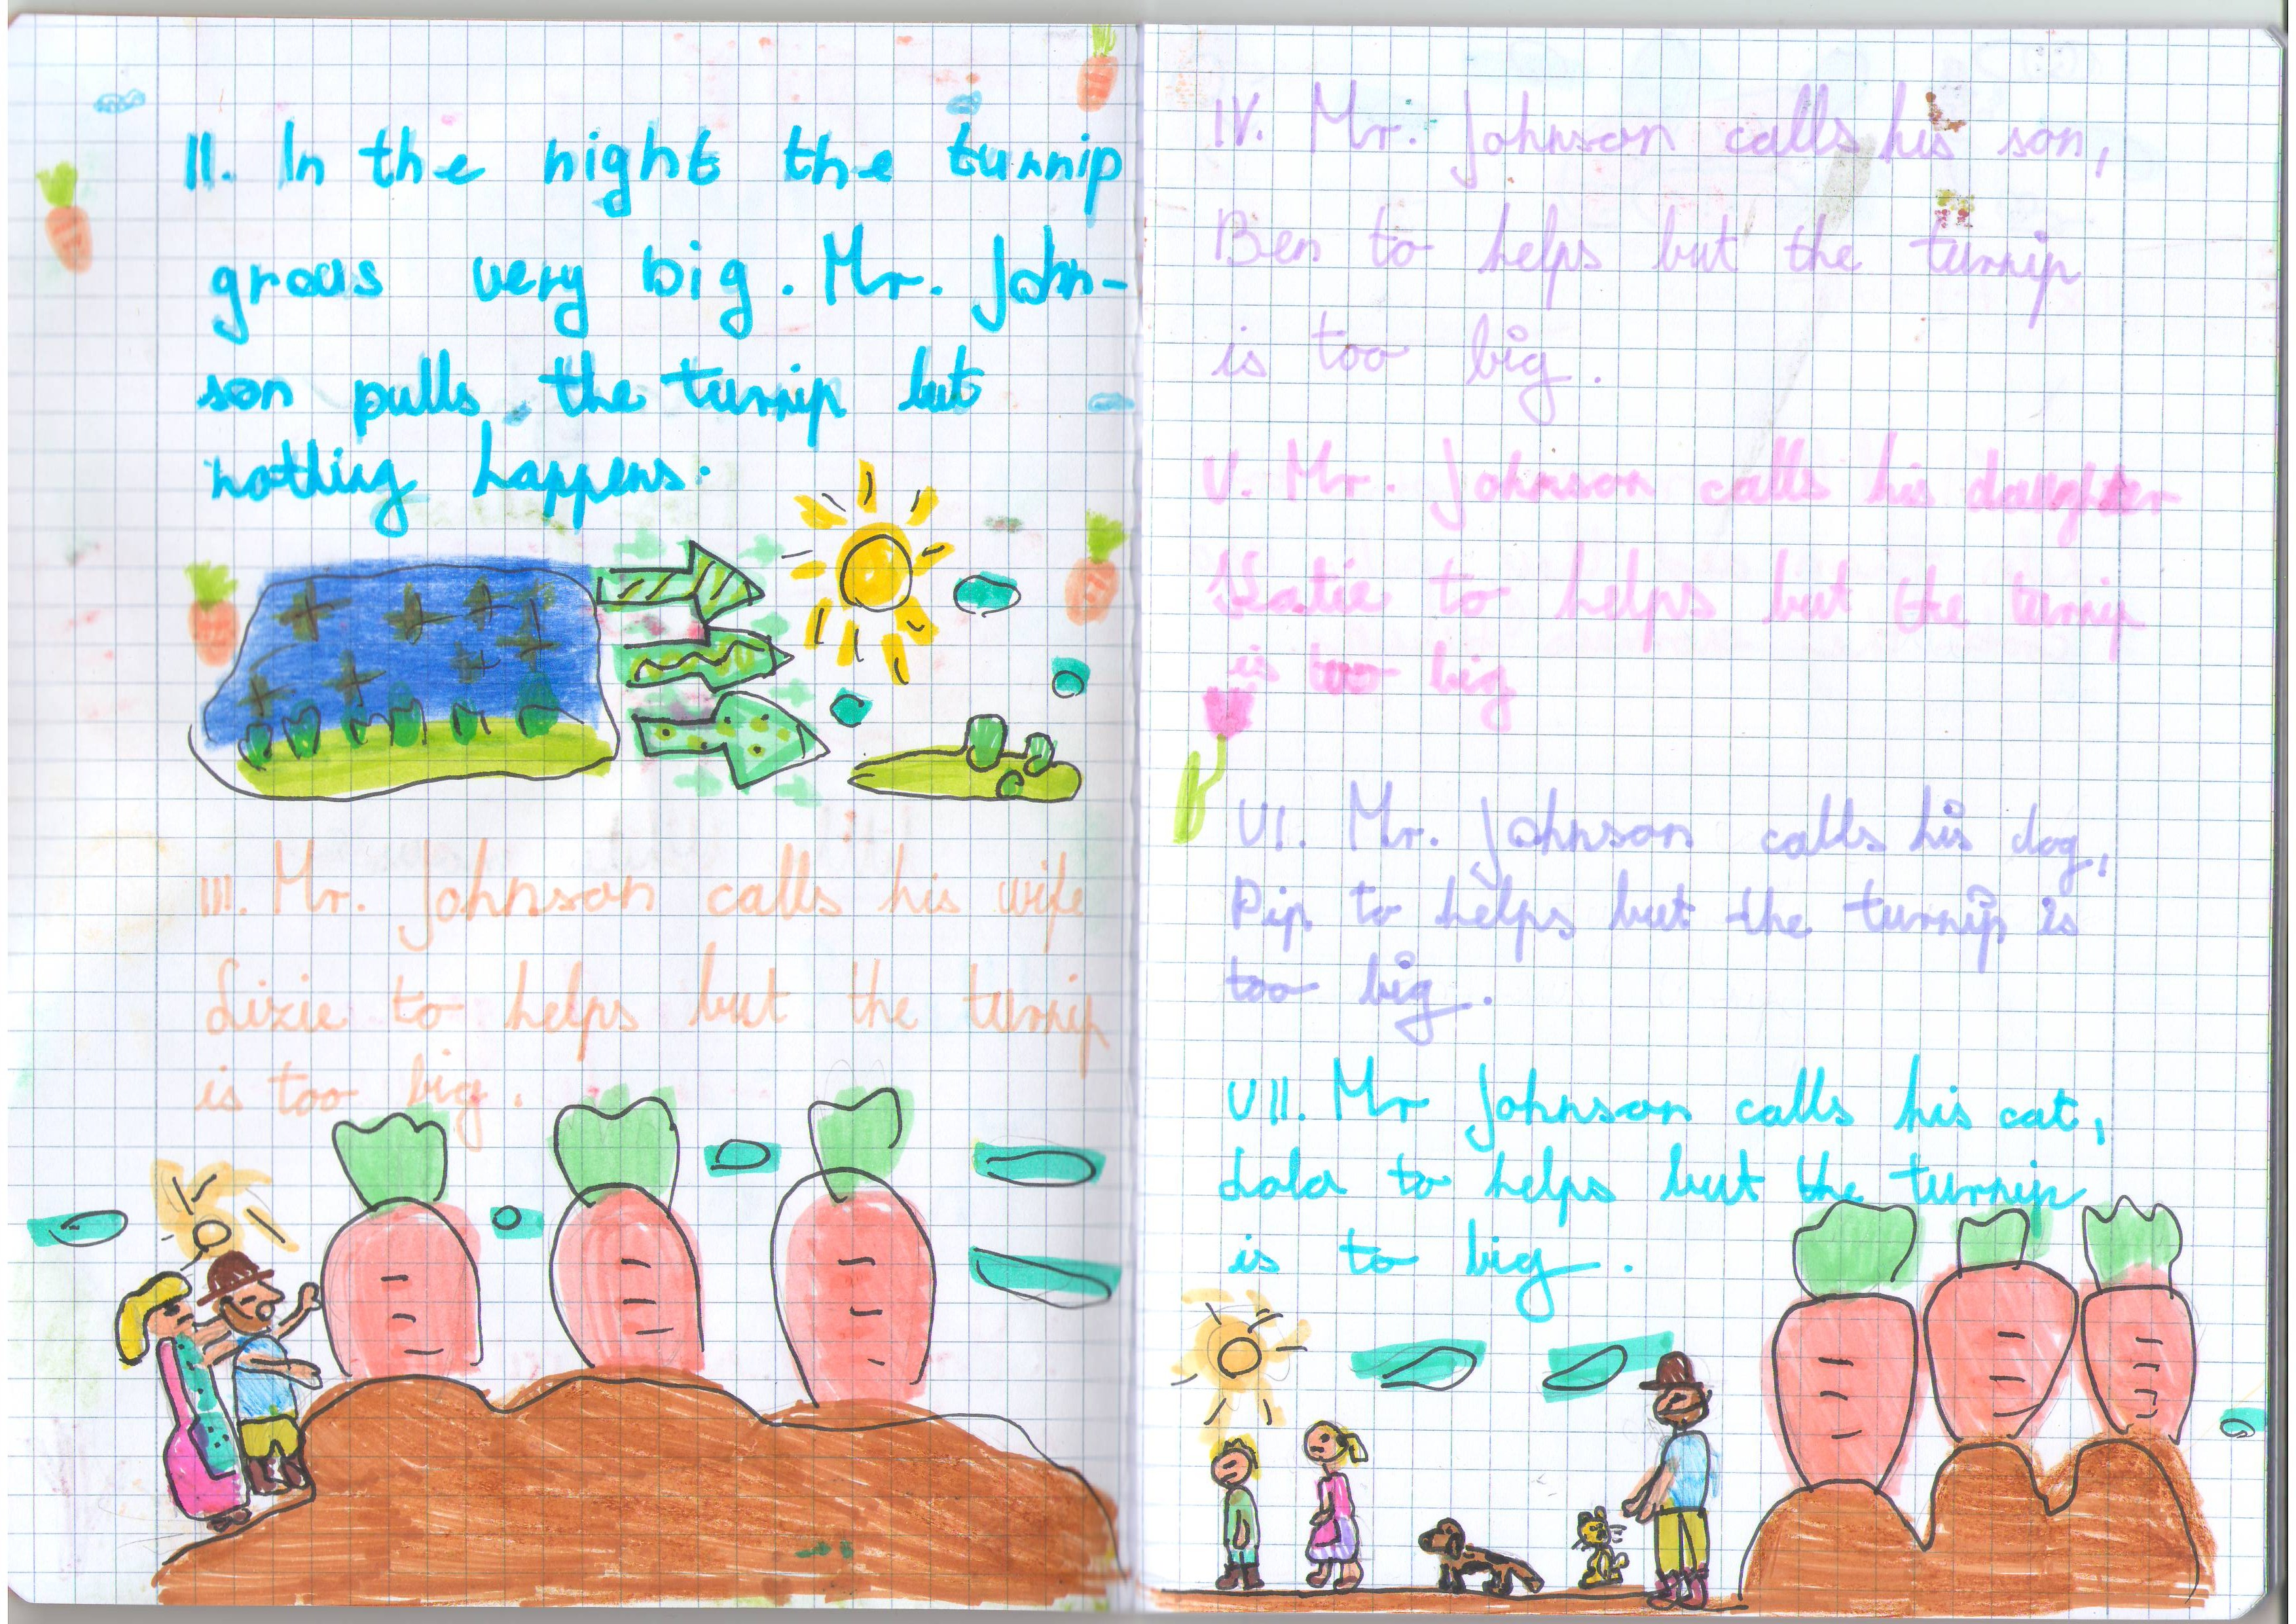 II. In the night the turnip
grous very big. Mr. John-
son pulls the turnip but
nothing happens.
III. Mr. Johnson calls his wife
Lizie to helps but the turnip
is too big.
IV. Mr. Johnson calls his son,
Ben to helps but the turnip
is too big.
V. Mr. Johnson calls his daughter
Katie to helps but the turnip
is too big
VI. Mr. Johnson calls his dog,
Pip to helps but the turnip is
too big.
VII. Mr Johnson calls his cat,
Lola to helps but the turnip
is to big.